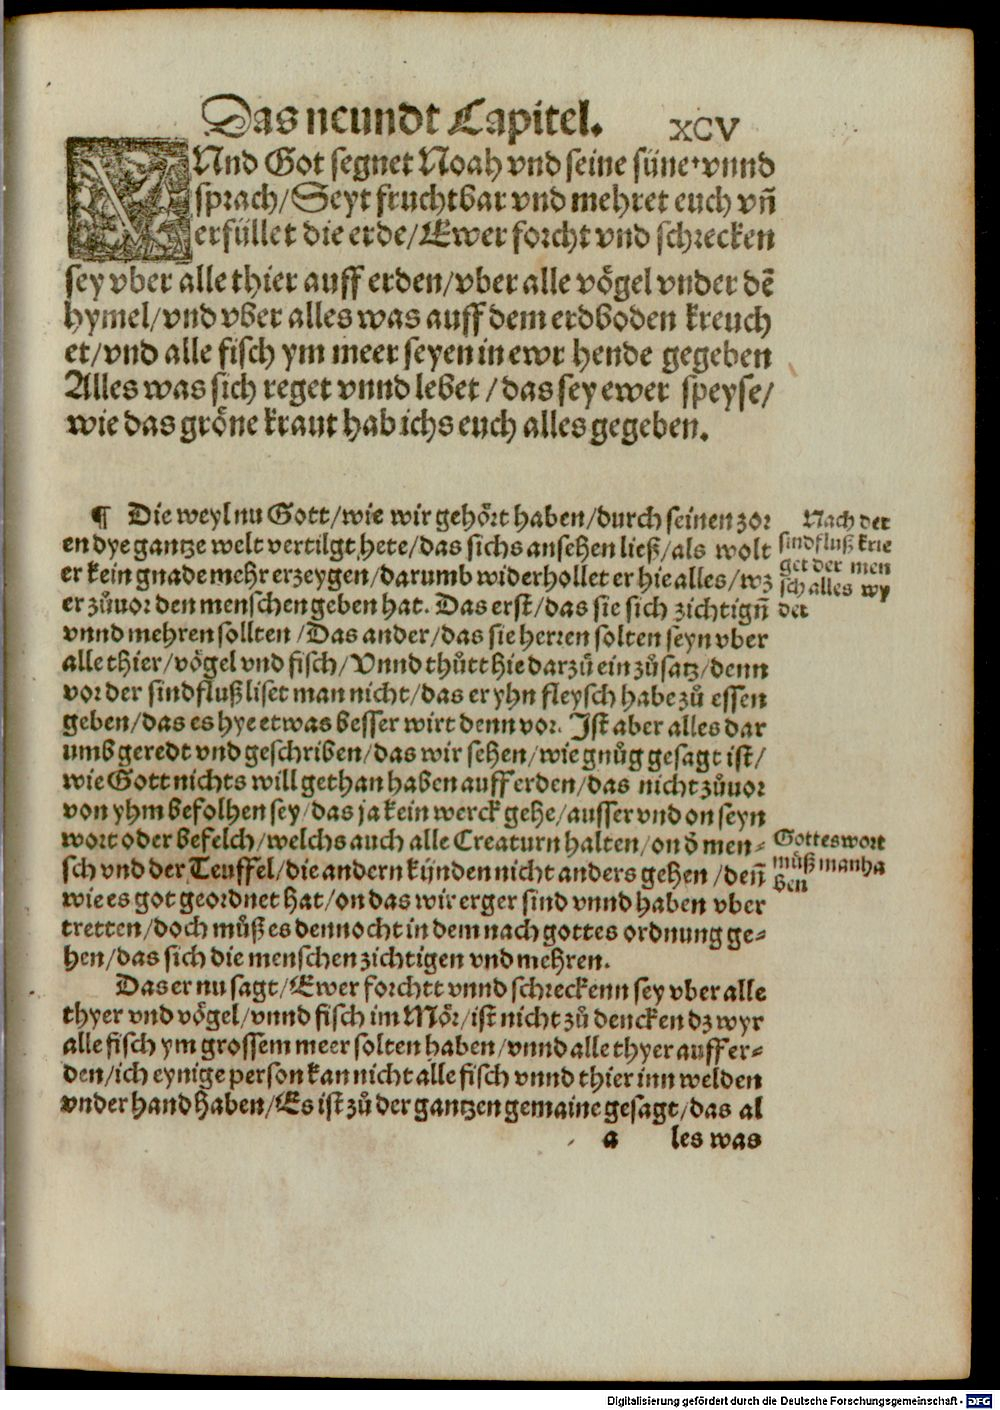 Das neundt Capitel. XCV
VNnd Got segnet Noah vnd seine süne, vnnd
sprach/Seyt fruchtbar vnd mehret euch vn̄
erfüllet die erde/Ewer forcht vnd schrecken
sey vber alle thier auff erden/vber alle vögel vnder dē
hymel/vnd vber alles was auff dem erdboden kreuch
et/vnd alle fisch ym meer seyen in ewr hende gegeben
Alles was sich reget vnnd lebet /das sey ewer speyse/
wie das gröne kraut hab ichs euch alles gegeben.
¶ Die weyl nu Gott/wie wir gehört haben/durch seinen zor
en dye gantze welt vertilgt hete/das sichs ansehen ließ/als wolt
er kein gnade mehr erzeygen/darumb widerhollet er hie alles/wz
er zůuor den menschen geben hat. Das erst/das sie sich zichtign̄
vnnd mehren sollten /Das ander/das sie herren solten seyn vber
alle thier/vögel vnd fisch/Vnnd thůtt hie darzů ein zůsatz/denn
vor der sindfluß liset man nicht/das er yhn fleysch habe zů essen
geben/das es hye etwas besser wirt denn vor. Ist aber alles dar
umb geredt vnd geschriben/das wir sehen/wie gnůg gesagt ist/
wie Gott nichts will gethan haben auff erden/das nicht zůuor
von yhm befolhen sey/das ja kein werck gehe/ausser vnd on seyn
wort oder befelch/welchs auch alle Creaturn halten/on ð men-
sch vnd der Teuffel/die andern kijnden nicht anders gehen /den̄
wie es got geordnet hat/on das wir erger sind vnnd haben vber
tretten/doch můß es dennocht in dem nach gottes ordnung ge-
hen/das sich die menschen zichtigen vnd mehren.
Das er nu sagt/Ewer forchtt vnnd schreckenn sey vber alle
thyer vnd vögel/vnnd fisch im Mör/ist nicht zů dencken dz wyr
alle fisch ym grossem meer solten haben/vnnd alle thyer auff er-
den/ich eynige person kan nicht alle fisch vnnd thier inn welden
vnder hand haben/Es ist zů der gantzen gemaine gesagt/das al
a les was
Nach der
sindfluß krie
get der men
sch alles wy
der
Gottes wort
můß man ha
ben
Digitalisierung gefördert durch die Deutsche Forschungsgemeinschaft - DFG